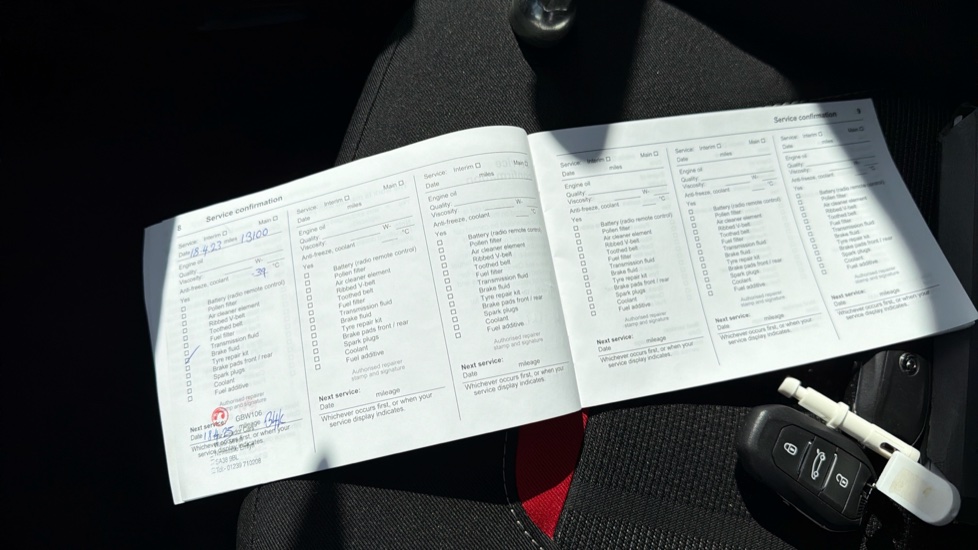 8
Service confirmation
Service: Interim ☐ Main ☐
Date 18.4.23 miles 13100
Engine oil
Quality: W-
Viscosity:
Anti-freeze, coolant -39 °C
Yes
☐ Battery (radio remote control)
☐ Pollen filter
☐ Air cleaner element
☐ Ribbed V-belt
☐ Toothed belt
☐ Fuel filter
☐ Transmission fluid
☐ Brake fluid
☐ Tyre repair kit
☐ Brake pads front / rear
☐ Spark plugs
☐ Coolant
☐ Fuel additive
Authorised repairer
stamp and signature
GBW106
Next service:
Date mileage
Whichever occurs first, or when your
service display indicates.
Tel - 01239 710208
Service: Interim ☐ Main ☐
Date miles
Engine oil
Quality: W-
Viscosity:
Anti-freeze, coolant °C
Yes
☐ Battery (radio remote control)
☐ Pollen filter
☐ Air cleaner element
☐ Ribbed V-belt
☐ Toothed belt
☐ Fuel filter
☐ Transmission fluid
☐ Brake fluid
☐ Tyre repair kit
☐ Brake pads front / rear
☐ Spark plugs
☐ Coolant
☐ Fuel additive
Authorised repairer
stamp and signature
Next service:
Date mileage
Whichever occurs first, or when your
service display indicates.
Service: Interim ☐ Main ☐
Date miles
Engine oil
Quality: W-
Viscosity:
Anti-freeze, coolant °C
Yes
☐ Battery (radio remote control)
☐ Pollen filter
☐ Air cleaner element
☐ Ribbed V-belt
☐ Toothed belt
☐ Fuel filter
☐ Transmission fluid
☐ Brake fluid
☐ Tyre repair kit
☐ Brake pads front / rear
☐ Spark plugs
☐ Coolant
☐ Fuel additive
Authorised repairer
stamp and signature
Next service:
Date mileage
Whichever occurs first, or when your
service display indicates.
Service confirmation
9
Service: Interim ☐ Main ☐
Date miles
Engine oil
Quality: W-
Viscosity:
Anti-freeze, coolant °C
Yes
☐ Battery (radio remote control)
☐ Pollen filter
☐ Air cleaner element
☐ Ribbed V-belt
☐ Toothed belt
☐ Fuel filter
☐ Transmission fluid
☐ Brake fluid
☐ Tyre repair kit
☐ Brake pads front / rear
☐ Spark plugs
☐ Coolant
☐ Fuel additive
Authorised repairer
stamp and signature
Next service:
Date mileage
Whichever occurs first, or when your
service display indicates.
Service: Interim ☐ Main ☐
Date miles
Engine oil
Quality: W-
Viscosity:
Anti-freeze, coolant °C
Yes
☐ Battery (radio remote control)
☐ Pollen filter
☐ Air cleaner element
☐ Ribbed V-belt
☐ Toothed belt
☐ Fuel filter
☐ Transmission fluid
☐ Brake fluid
☐ Tyre repair kit
☐ Brake pads front / rear
☐ Spark plugs
☐ Coolant
☐ Fuel additive
Authorised repairer
stamp and signature
Next service:
Date mileage
Whichever occurs first, or when your
service display indicates.
Service: Interim ☐ Main ☐
Date miles
Engine oil
Quality: W-
Viscosity:
Anti-freeze, coolant °C
Yes
☐ Battery (radio remote control)
☐ Pollen filter
☐ Air cleaner element
☐ Ribbed V-belt
☐ Toothed belt
☐ Fuel filter
☐ Transmission fluid
☐ Brake fluid
☐ Tyre repair kit
☐ Brake pads front / rear
☐ Spark plugs
☐ Coolant
☐ Fuel additive
Authorised repairer
stamp and signature
Next service:
Date mileage
Whichever occurs first, or when your
service display indicates.